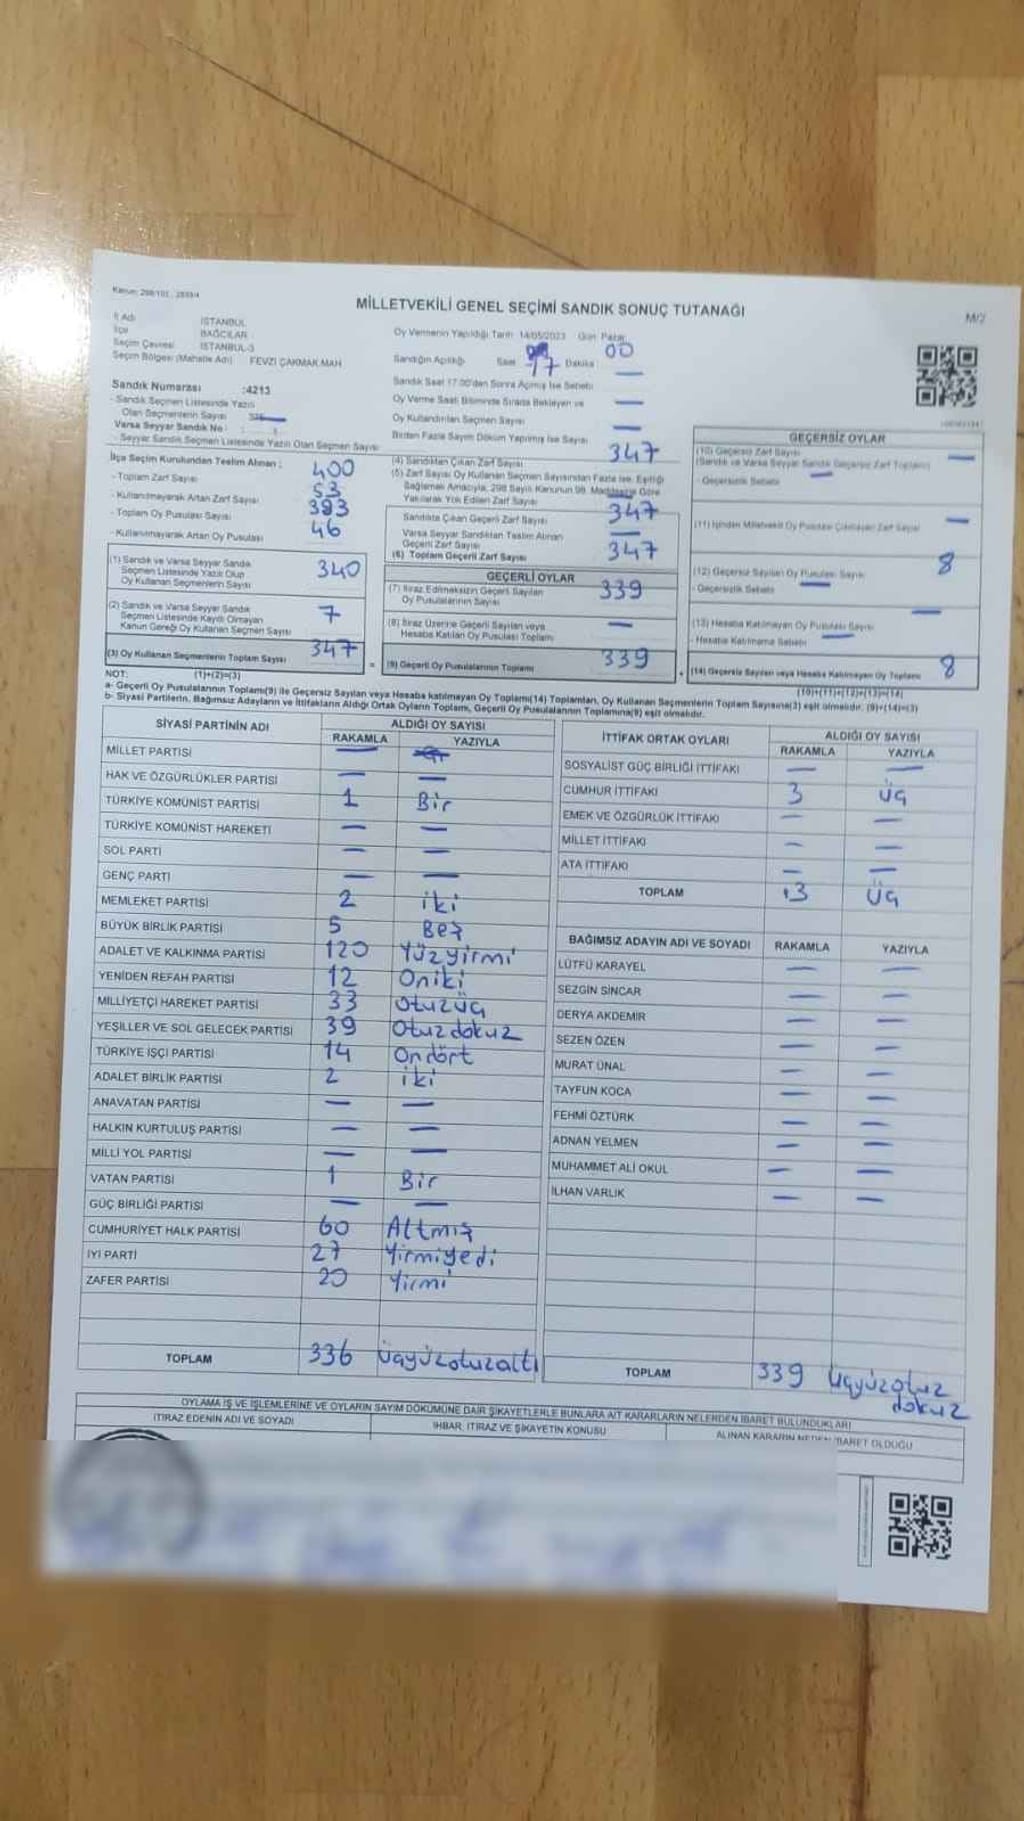 Kanun: 298/105, 2839/4
MİLLETVEKİLİ GENEL SEÇİMİ SANDIK SONUÇ TUTANAĞI
M/2
İl Adı İSTANBUL
İlçe BAĞCILAR
Seçim Çevresi İSTANBUL-3
Seçim Bölgesi (Mahalle Adı) FEVZİ ÇAKMAK MAH
Oy Vermenin Yapıldığı Tarih 14/05/2023 Gün Pazar
Sandığın Açıldığı Saat 17 Dakika 00
Sandık Saat 17.00'den Sonra Açılmış İse Sebebi —
Oy Verme Saati Bitiminde Sırada Bekleyen ve —
Oy Kullandırılan Seçmen Sayısı —
Birden Fazla Sayım Döküm Yapılmış İse Sayısı
Sandık Numarası :4213
- Sandık Seçmen Listesinde Yazılı
Olan Seçmenlerin Sayısı
Varsa Seyyar Sandık No :
- Seyyar Sandık Seçmen Listesinde Yazılı Olan Seçmen Sayısı
İlçe Seçim Kurulundan Teslim Alınan :
- Toplam Zarf Sayısı 400
- Kullanılmayarak Artan Zarf Sayısı 53
- Toplam Oy Pusulası Sayısı 393
- Kullanılmayarak Artan Oy Pusulası 46
(1) Sandık ve Varsa Seyyar Sandık
Seçmen Listesinde Yazılı Olup
Oy Kullanan Seçmenlerin Sayısı 340
(2) Sandık ve Varsa Seyyar Sandık
Seçmen Listesinde Kayıtlı Olmayan
Kanun Gereği Oy Kullanan Seçmen Sayısı 7
(3) Oy Kullanan Seçmenlerin Toplam Sayısı 347
(1)+(2)=(3)
(4) Sandıktan Çıkan Zarf Sayısı 347
(5) Zarf Sayısı Oy Kullanan Seçmen Sayısından Fazla ise, Eşitliği
Sağlamak Amacıyla, 298 Sayılı Kanunun 98. Maddesine Göre
Yakılarak Yok Edilen Zarf Sayısı —
Sandıkta Çıkan Geçerli Zarf Sayısı 347
Varsa Seyyar Sandıktan Teslim Alınan
Geçerli Zarf Sayısı —
(6) Toplam Geçerli Zarf Sayısı 347
GEÇERLİ OYLAR
(7) İtiraz Edilmeksizin Geçerli Sayılan
Oy Pusulalarının Sayısı 339
(8) İtiraz Üzerine Geçerli Sayılan veya
Hesaba Katılan Oy Pusulası Toplamı —
(9) Geçerli Oy Pusulalarının Toplamı 339
GEÇERSİZ OYLAR
(10) Geçersiz Zarf Sayısı —
(Sandık ve Varsa Seyyar Sandık Geçersiz Zarf Toplamı)
- Geçersizlik Sebebi —
(11) İçinden Milletvekili Oy Pusulası Çıkmayan Zarf Sayısı —
(12) Geçersiz Sayılan Oy Pusulası Sayısı 8
- Geçersizlik Sebebi —
(13) Hesaba Katılmayan Oy Pusulası Sayısı —
- Hesaba Katılmama Sebebi —
(14) Geçersiz Sayılan veya Hesaba Katılmayan Oy Toplamı 8
(10)+(11)+(12)+(13)=(14)
NOT:
a- Geçerli Oy Pusulalarının Toplamı(9) ile Geçersiz Sayılan veya Hesaba katılmayan Oy Toplamı(14) Toplamları, Oy Kullanan Seçmenlerin Toplam Sayısına(3) eşit olmalıdır. (9)+(14)=(3)
b- Siyasi Partilerin, Bağımsız Adayların ve İttifakların Aldığı Ortak Oyların Toplamı, Geçerli Oy Pusulalarının Toplamına(9) eşit olmalıdır.
SİYASİ PARTİNİN ADI ALDIĞI OY SAYISI
RAKAMLA YAZIYLA
MİLLET PARTİSİ —
HAK VE ÖZGÜRLÜKLER PARTİSİ — —
TÜRKİYE KOMÜNİST PARTİSİ 1 Bir
TÜRKİYE KOMÜNİST HAREKETİ — —
SOL PARTİ — —
GENÇ PARTİ — —
MEMLEKET PARTİSİ 2 iki
BÜYÜK BİRLİK PARTİSİ 5 Beş
ADALET VE KALKINMA PARTİSİ 120 Yüzyirmi
YENİDEN REFAH PARTİSİ 12 Oniki
MİLLİYETÇİ HAREKET PARTİSİ 33 Otuzüç
YEŞİLLER VE SOL GELECEK PARTİSİ 39 Otuzdokuz
TÜRKİYE İŞÇİ PARTİSİ 14 Ondört
ADALET BİRLİK PARTİSİ 2 iki
ANAVATAN PARTİSİ — —
HALKIN KURTULUŞ PARTİSİ — —
MİLLİ YOL PARTİSİ — —
VATAN PARTİSİ 1 Bir
GÜÇ BİRLİĞİ PARTİSİ — —
CUMHURİYET HALK PARTİSİ 60 Altmış
İYİ PARTİ 27 Yirmiyedi
ZAFER PARTİSİ 20 Yirmi
TOPLAM 336 Üçyüzotuzaltı
İTTİFAK ORTAK OYLARI ALDIĞI OY SAYISI
RAKAMLA YAZIYLA
SOSYALİST GÜÇ BİRLİĞİ İTTİFAKI — —
CUMHUR İTTİFAKI 3 Üç
EMEK VE ÖZGÜRLÜK İTTİFAKI — —
MİLLET İTTİFAKI — —
ATA İTTİFAKI — —
TOPLAM 3 Üç
BAĞIMSIZ ADAYIN ADI VE SOYADI RAKAMLA YAZIYLA
LÜTFÜ KARAYEL — —
SEZGİN SİNCAR — —
DERYA AKDEMİR — —
SEZEN ÖZEN — —
MURAT ÜNAL — —
TAYFUN KOCA — —
FEHMİ ÖZTÜRK — —
ADNAN YELMEN — —
MUHAMMET ALİ OKUL — —
İLHAN VARLIK — —
TOPLAM 339 Üçyüzotuz
dokuz
OYLAMA İŞ VE İŞLEMLERİNE VE OYLARIN SAYIM DÖKÜMÜNE DAİR ŞİKAYETLERLE BUNLARA AİT KARARLARIN NELERDEN İBARET BULUNDUKLARI
İTİRAZ EDENİN ADI VE SOYADI
İHBAR, İTİRAZ VE ŞİKAYETİN KONUSU
ALINAN KARARIN NEDEN İBARET OLDUĞU